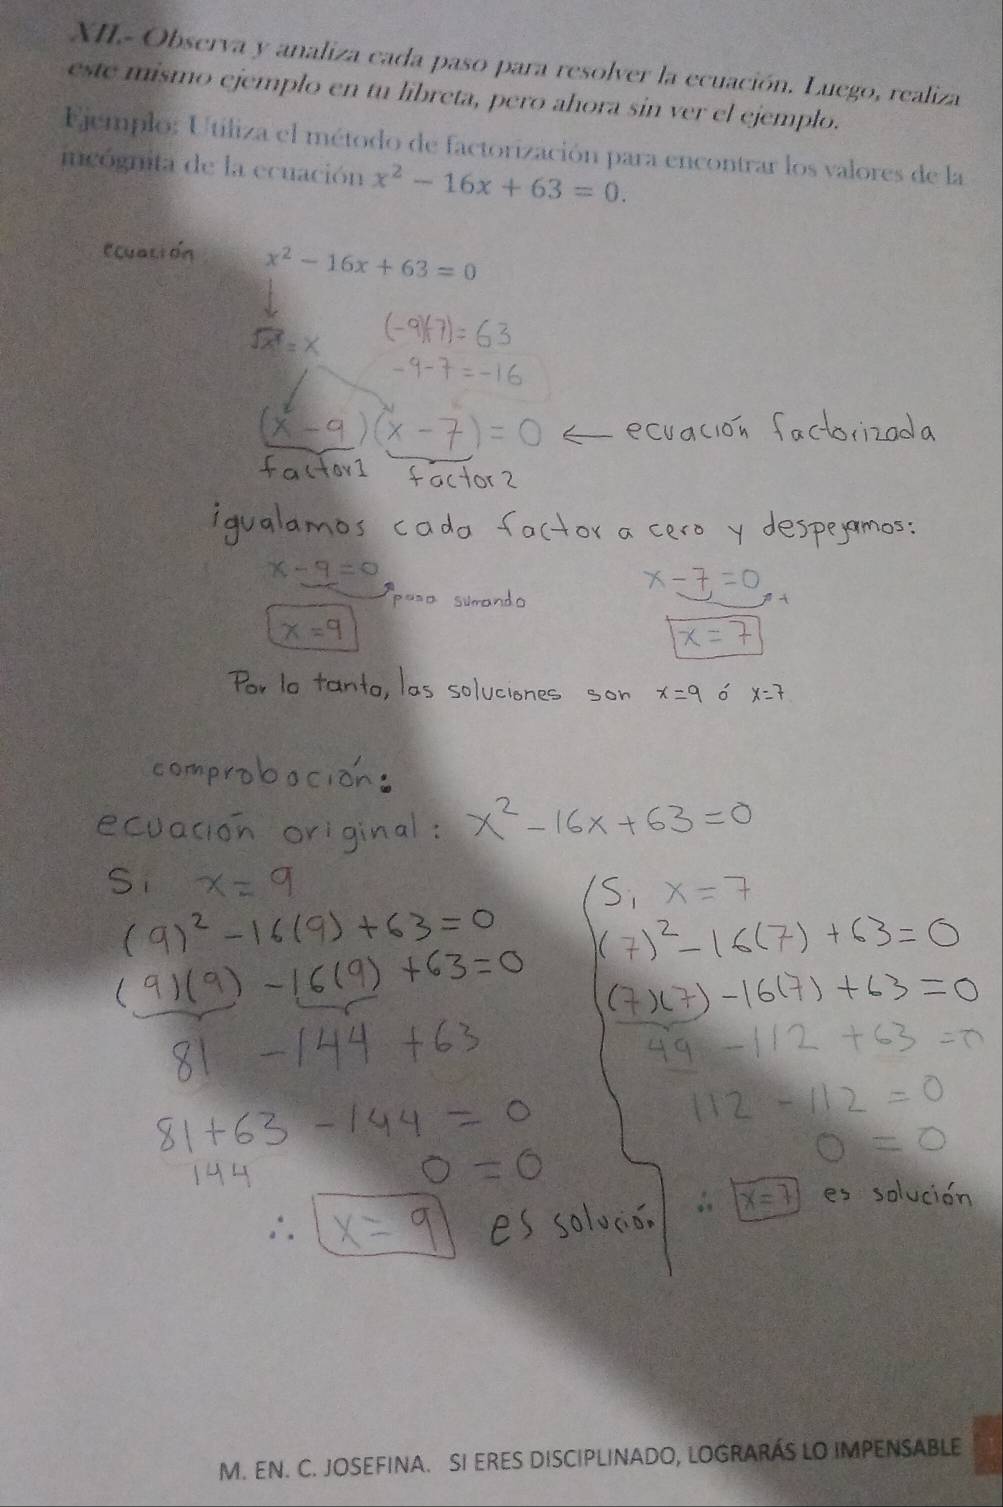 XII.- Observa y analiza cada paso para resolver la ecuación. Luego, realiza
este mismo ejemplo en tu libreta, pero ahora sin ver el ejemplo.
Ejemplo: Utiliza el método de factorización para encontrar los valores de la
incógnita de la ecuación x² − 16x + 63 = 0.
ecuación x² − 16x + 63 = 0
√x² = x (-9)(-7) = 63
-9-7 = -16
(x - 9)(x - 7) = 0 ← ecuación factorizada
factor 1 factor 2
igualamos cada factor a cero y despejamos:
x - 9 = 0 x - 7 = 0
pasa sumando +
x = 9 x = 7
Por lo tanto, las soluciones son x=9 ó x=7
comprobación:
ecuación original: x² - 16x + 63 = 0
Si x = 9 Si x = 7
(9)² - 16(9) + 63 = 0 (7)² - 16(7) + 63 = 0
(9)(9) - 16(9) + 63 = 0 (7)(7) - 16(7) + 63 = 0
81 - 144 + 63 49 - 112 + 63 = 0
81 + 63 - 144 = 0 112 - 112 = 0
144 0 = 0 0 = 0
∴ x = 9 es solución ∴ x = 7 es solución
M. EN. C. JOSEFINA. SI ERES DISCIPLINADO, LOGRARÁS LO IMPENSABLE